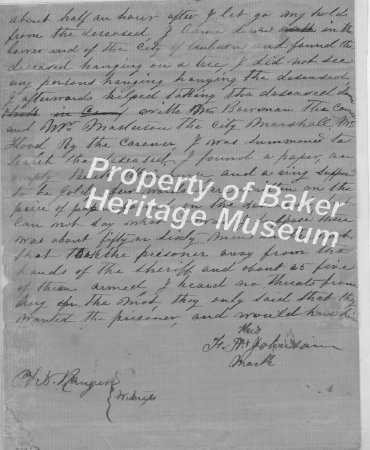 about half an hour after I let go my hold
from the deceased, I Came down in the
lower end of the City of Auburn and found the
deceased hanging on a tree, I did not see
any persons hanging hanging the deceased
I afterwards helped taking the deceased down
with Wm Bowman the
and Mr. Masterson the City Marshall, Mr
Flood By the Caroner, I was summoned to
Search the deceased, I found a paper, an
empty and a ring
to be Gold, on the
piece of paper
Can not say what there
was about fifty or sixty men
that the presoner away from the
hands of the sheriff and about 25 five
of them armed, I heard no threats from
any in the mob, they only said that they
wanted the prisoner, and would have him
his
Johnson
mark
Witness
Property of Baker
Heritage Museum